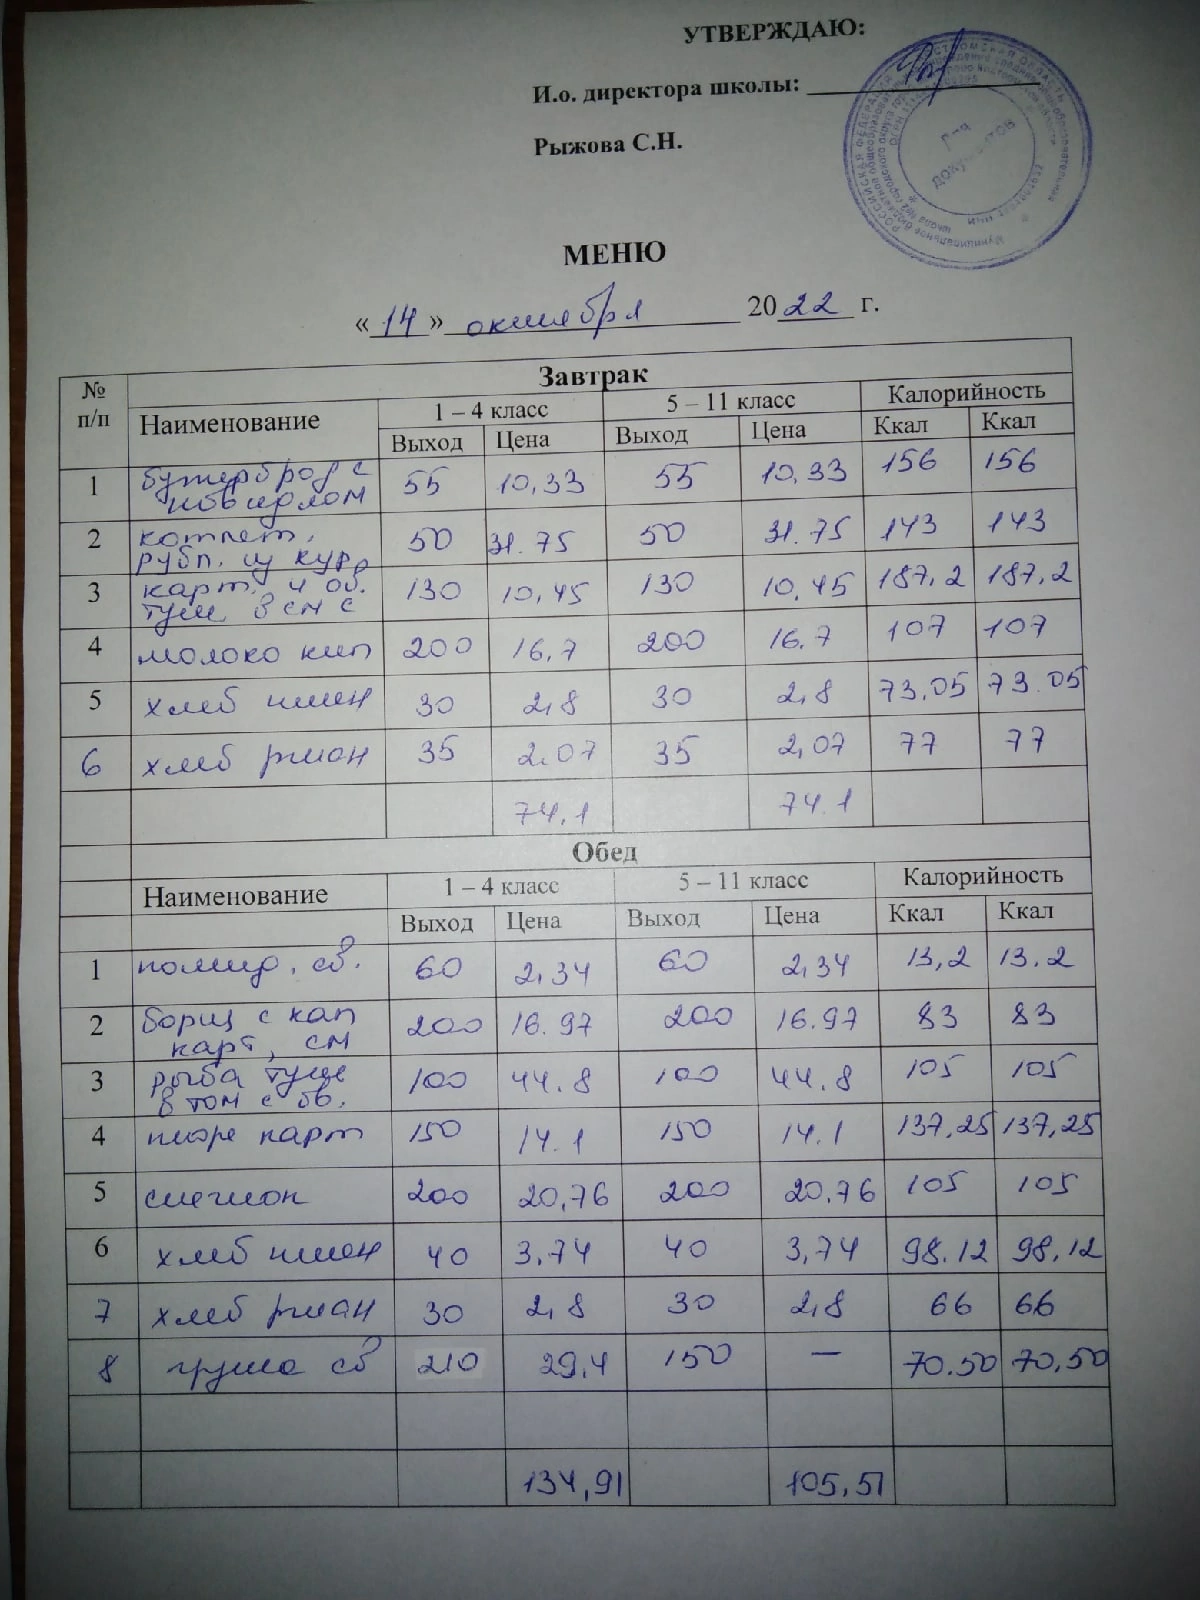 УТВЕРЖДАЮ:
И.о. директора школы:
Рыжова С.Н.
Для
документов
МЕНЮ
«14» октября 2022 г.
№ п/п Завтрак
Наименование 1 – 4 класс 5 – 11 класс Калорийность
Выход Цена Выход Цена Ккал Ккал
1 бутерброд с 55 10,33 55 10,33 156 156
повидлом
2 котлет. 50 31.75 50 31.75 143 143
рубл. из кур
3 карт. и ов. 130 10,45 130 10,45 187,2 187,2
туш. в см с
4 молоко кип 200 16,7 200 16,7 107 107
5 хлеб пшен 30 2,8 30 2,8 73,05 73.05
6 хлеб ржан 35 2.07 35 2,07 77 77
74,1 74.1
Обед
Наименование 1 – 4 класс 5 – 11 класс Калорийность
Выход Цена Выход Цена Ккал Ккал
1 помид. св. 60 2,34 60 2,34 13,2 13.2
2 борщ с кап 200 16.97 200 16.97 83 83
карт, см
3 рыба туше 100 44.8 100 44.8 105 105
в том с ов.
4 пюре карт 150 14.1 150 14.1 137,25 137,25
5 200 20,76 200 20.76 105 105
6 хлеб пшен 40 3,74 40 3,74 98.12 98,12
7 хлеб ржан 30 2,8 30 2,8 66 66
8 груша св 210 29,4 150 — 70.50 70,50
134,91 105,51